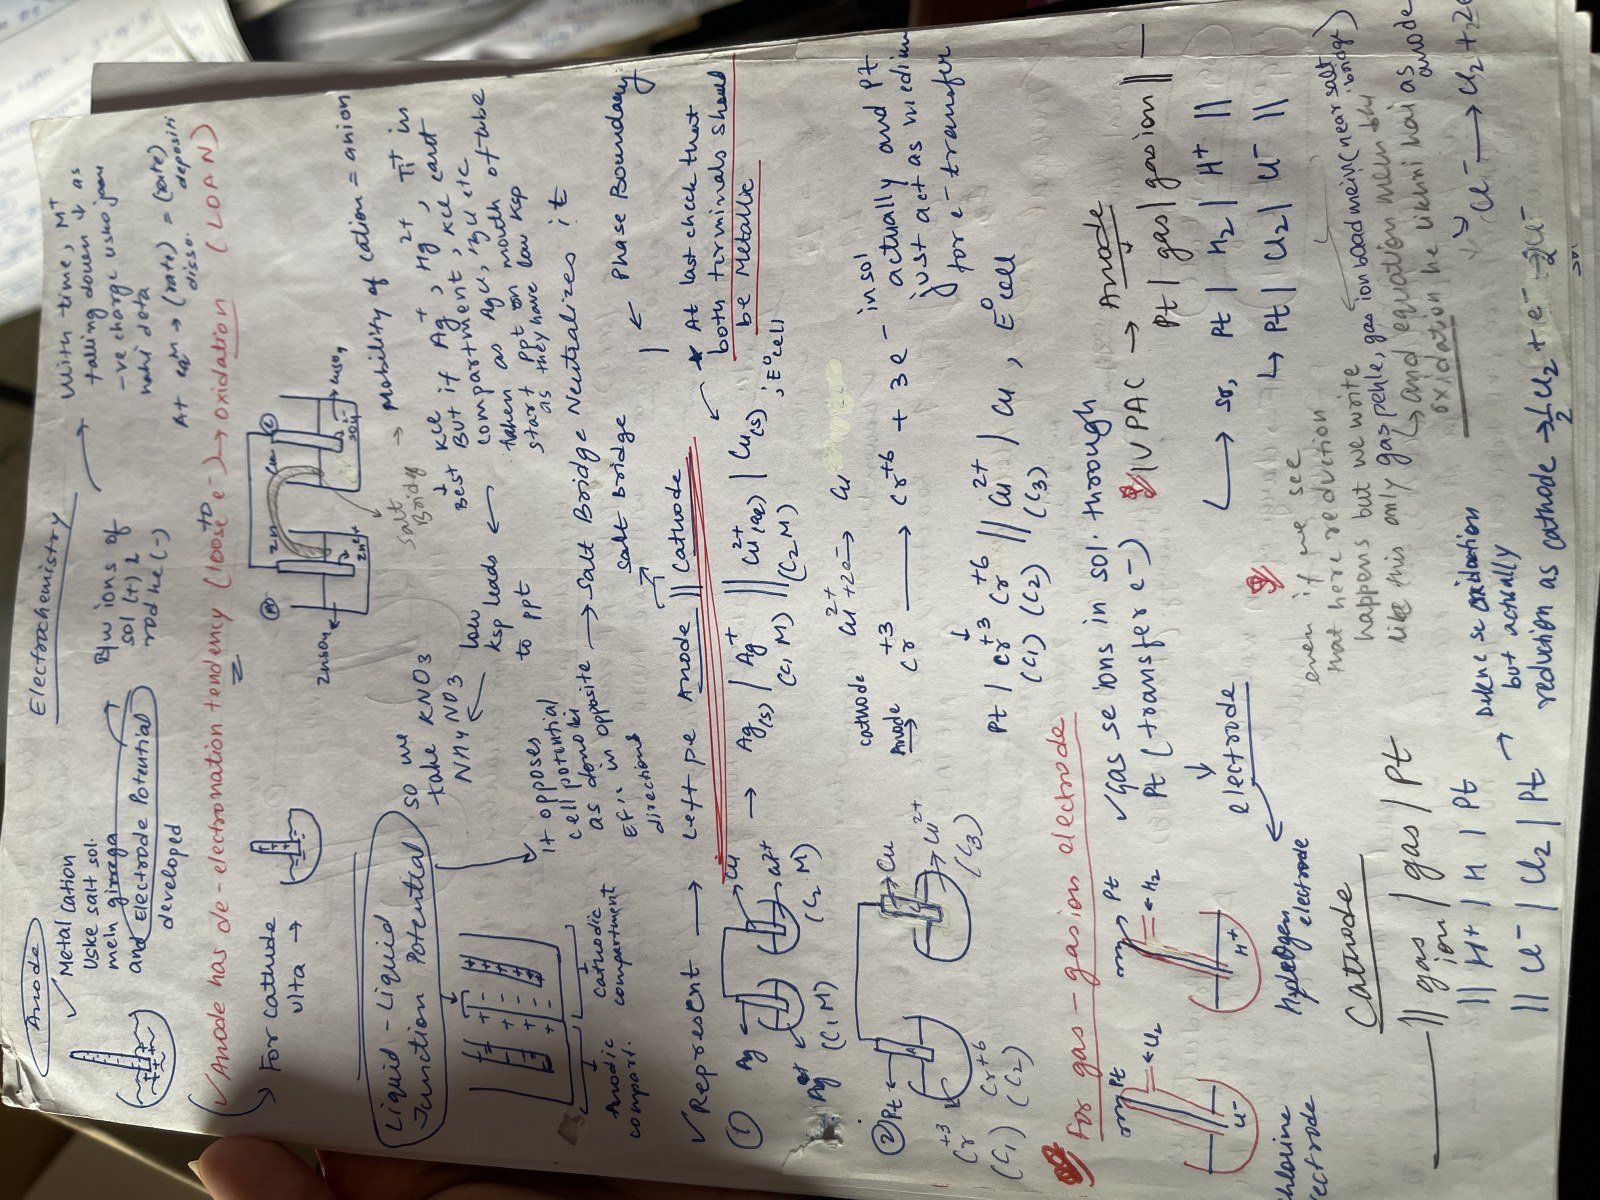 Electrochemistry
Anode
✓ Metal cation
uske salt sol.
mein girrega
and Electrode Potential
developed
B/w ions of
sol (+) &
rod he (-)
→ With time, M+
falling down ↓ as
-ve charge usko jaan
nahi deta
At eqm → (rate) diss. = (rate) depositi
✓ Anode has de-electronation tendency (loose to e-) → oxidation (LOAN)
→ For Cathode
ulta →
(A) Zn
Cu (C)
ZnSO4
Zn2+
CuSO4
SO4
Salt
Bridge
→ Mobility of cation = anion
Liquid-Liquid
Junction Potential
so we
take KNO3
NH4NO3
low
ksp leads
to ppt
Best KCl
↓
But if Ag+, Hg2+, Tl+ in
compartment, KCl can't
taken as AgCl, TlCl etc
start ppt on mouth of tube
as they have low Ksp
it opposes
cell potential
as dono ki
EF is in opposite
directions
→ Salt Bridge Neutralizes it
Anodic
compart.
cathodic
compartment
✓ Represent → Left pe Anode || Cathode
Salt bridge
| ← Phase Boundary
* At last check that
both terminals should
be Metallic
① Ag
Cu
Ag+
(C1M)
Cu2+
(C2 M)
→ Ag(s) | Ag+ || Cu2+(aq) | Cu(s) ; E°cell
(C1 M) (C2M)
② Pt
Cu
Cr+3 Cr+6
(C1) (C2)
Cu2+
(C3)
cathode Cu2+ + 2e- → Cu
Anode → Cr+3 → Cr+6 + 3e-
in sol
actually and Pt
just act as medium
for e- transfer
Pt | Cr+3 Cr+6 || Cu2+ | Cu , E°cell
(C1) (C2) (C3)
For gas-gas ion electrode
✓ Gas se ions in sol. through
Pt (transfer e-)
IUPAC → Anode
Pt | gas | gas ion || —
↳ so, Pt | H2 | H+ ||
↳ Pt | Cl2 | Cl- ||
Pt
← Cl2
Cl-
chlorine
electrode
Pt
← H2
H+
hydrogen
electrode
↓
electrode
even if we see
that here reduction
happens but we write
like this only
gas pehle, gas ion baad mein (near salt bridge)
→ and equation mein bhi
oxidation he likhni hai as anode
Cl- → Cl2 + 2e
Cathode
— || gas ion | gas | Pt
|| H+ | H | Pt
|| Cl- | Cl2 | Pt
→ Dikhne se oxidation
but actually
reduction as cathode → 1/2 Cl2 + e- → Cl-